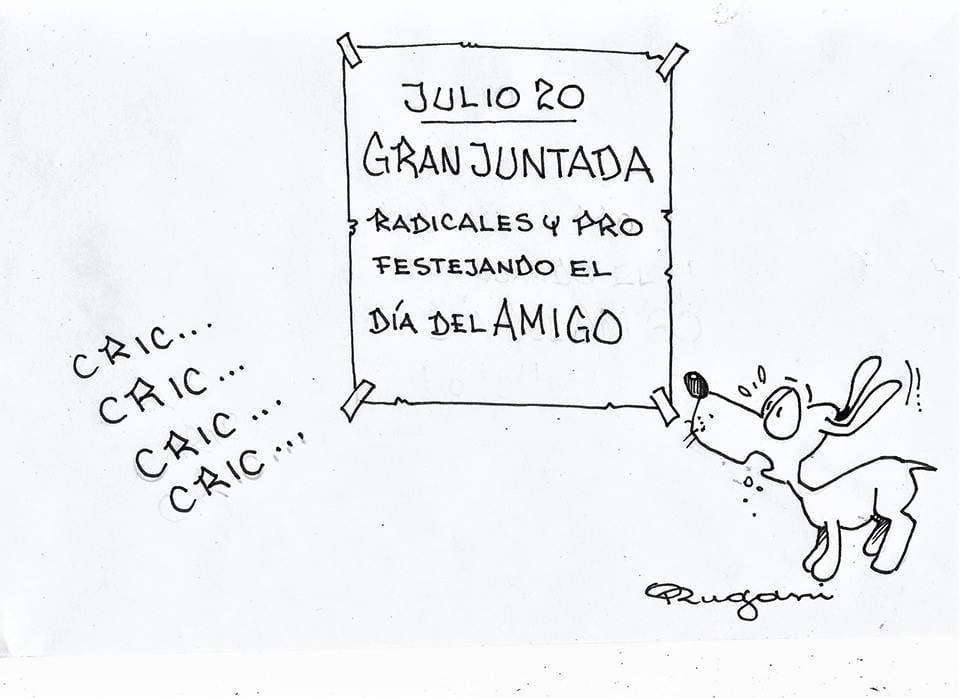 JULIO 20
GRAN JUNTADA
RADICALES Y PRO
FESTEJANDO EL
DÍA DEL AMIGO
CRIC...
CRIC...
CRIC...
CRIC...
Rugani